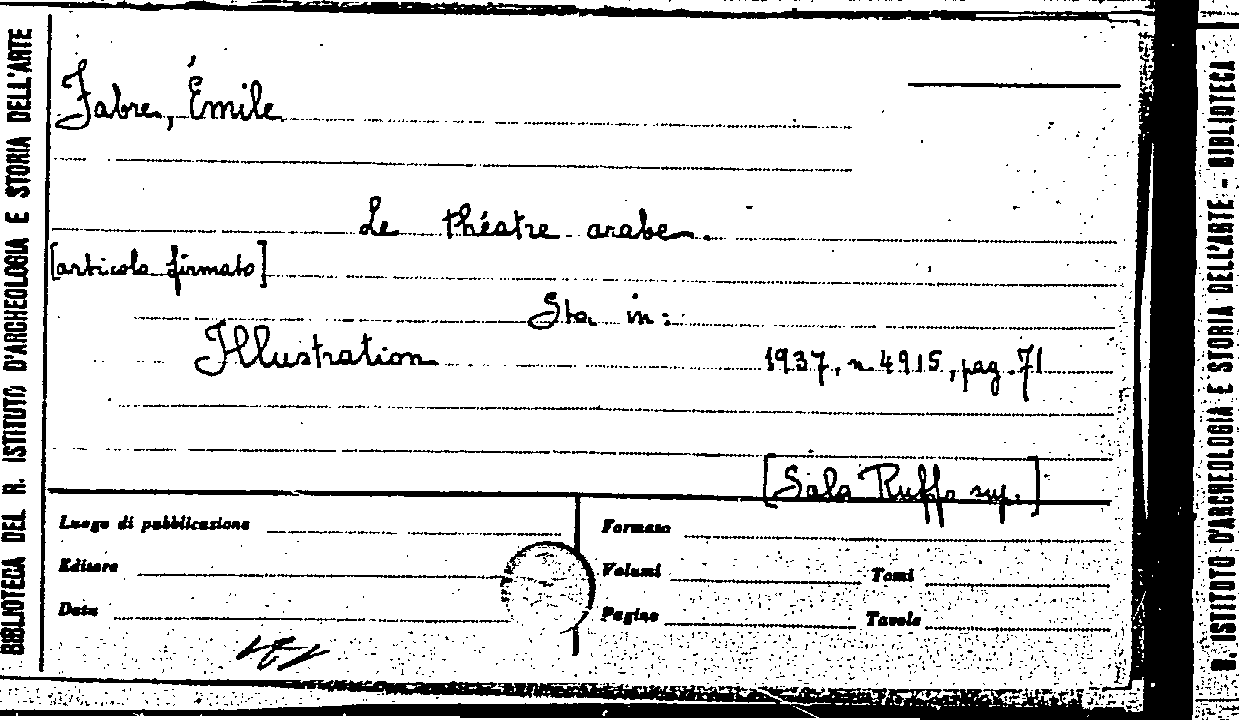 Fabre, Émile
Le théatre arabe.
[articolo firmato]
Sta in:
Illustration 1937, n. 4915, pag. 71
[Sala Ruffo sup.]
Luogo di pubblicazione
Formato
Editore
Volumi
Tomi
Data
Pagine
Tavole
BIBLIOTECA DEL R. ISTITUTO D'ARCHEOLOGIA E STORIA DELL'ARTE
R. ISTITUTO D'ARCHEOLOGIA E STORIA DELL'ARTE - BIBLIOTECA